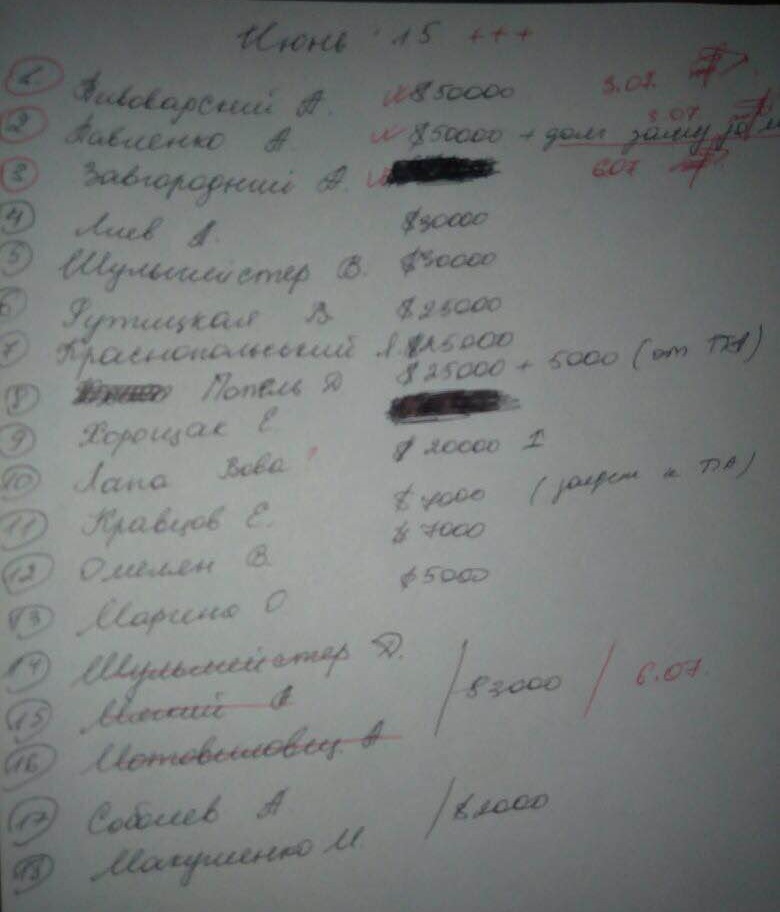 Июнь '15 +++
1 Пивоварский А. $50000 3.07.
2 Павленко А $50000 + долг 3.07
3 Завгородний А. 6.07
4 Лиев А. $30000
5 Шульмейстер В. $30000
6 Рутицкая В $25000
7 Краснопольський Я $25000
8 Попель Д $25000 + 5000 (от
9 Хорощак Е
10 Лапа Вова ? $20000
11 Кравцов Е. $7000 (
12 Омелян В. $7000
13 Марино О $5000
14 Шульмейстер Д.
15 Мякий А $3000 6.07.
16 Мотовиловец А
17 Соболев А
18 Макуменко М. $2000